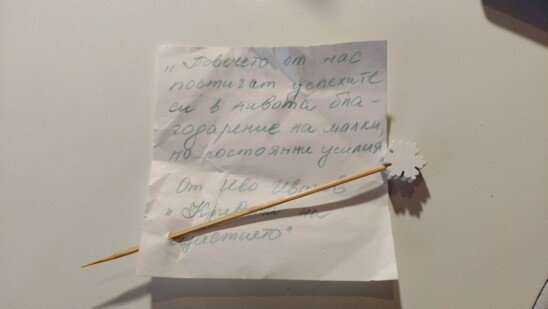 „Повечето от нас
постигат успехите
си в живота бла-
годарение на малки,
но постоянни усилия
От Иво Иванов
„Кривата на
щастието"